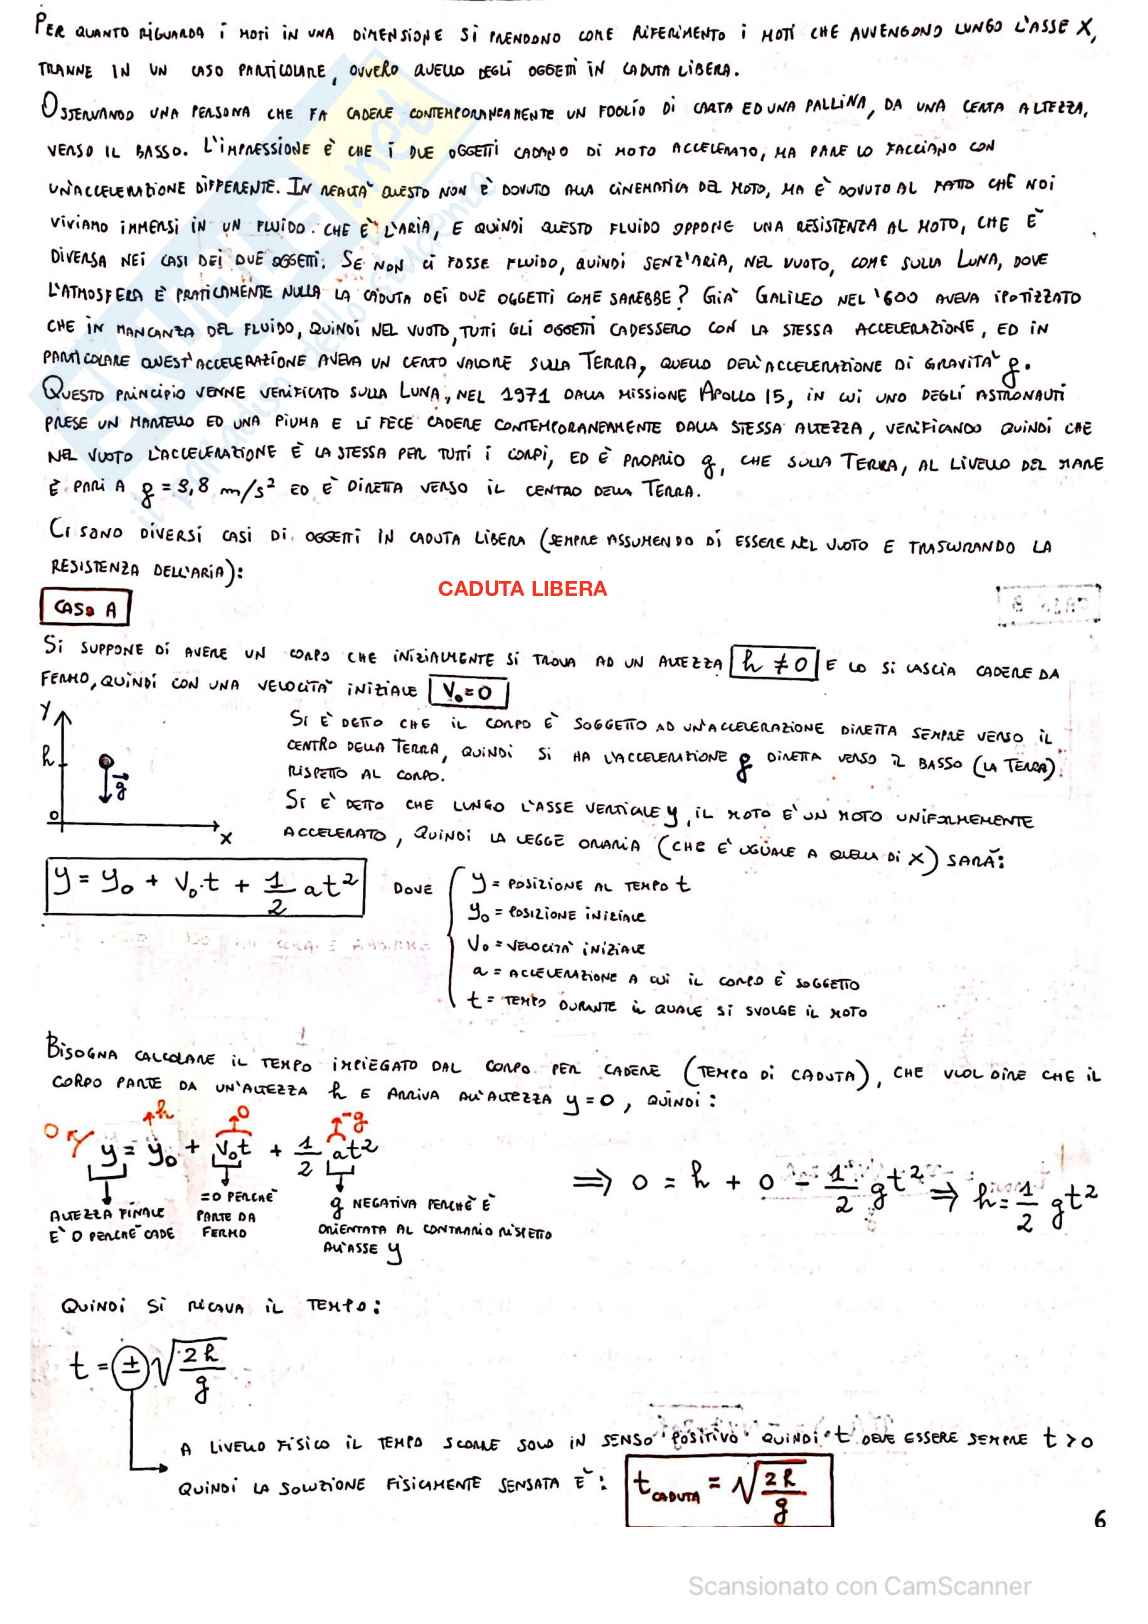 PER QUANTO RIGUARDA I MOTI IN UNA DIMENSIONE SI PRENDONO COME RIFERIMENTO I MOTI CHE AVVENGONO LUNGO L'ASSE X,
TRANNE IN UN CASO PARTICOLARE, OVVERO QUELLO DEGLI OGGETTI IN CADUTA LIBERA.
OSSERVANDO UNA PERSONA CHE FA CADERE CONTEMPORANEAMENTE UN FOGLIO DI CARTA ED UNA PALLINA, DA UNA CERTA ALTEZZA,
VERSO IL BASSO. L'IMPRESSIONE È CHE I DUE OGGETTI CADANO DI MOTO ACCELERATO, MA PARE LO FACCIANO CON
UN'ACCELERAZIONE DIFFERENTE. IN REALTÀ QUESTO NON È DOVUTO ALLA CINEMATICA DEL MOTO, MA È DOVUTO AL FATTO CHE NOI
VIVIAMO IMMERSI IN UN FLUIDO. CHE È L'ARIA, E QUINDI QUESTO FLUIDO OPPONE UNA RESISTENZA AL MOTO, CHE È
DIVERSA NEI CASI DEI DUE OGGETTI. SE NON CI FOSSE FLUIDO, QUINDI SENZ'ARIA, NEL VUOTO, COME SULLA LUNA, DOVE
L'ATMOSFERA È PRATICAMENTE NULLA LA CADUTA DEI DUE OGGETTI COME SAREBBE? GIÀ GALILEO NEL '600 AVEVA IPOTIZZATO
CHE IN MANCANZA DEL FLUIDO, QUINDI NEL VUOTO, TUTTI GLI OGGETTI CADESSERO CON LA STESSA ACCELERAZIONE, ED IN
PARTICOLARE QUEST'ACCELERAZIONE AVEVA UN CERTO VALORE SULLA TERRA, QUELLO DELL'ACCELERAZIONE DI GRAVITÀ g.
QUESTO PRINCIPIO VENNE VERIFICATO SULLA LUNA, NEL 1971 DALLA MISSIONE APOLLO 15, IN CUI UNO DEGLI ASTRONAUTI
PRESE UN MARTELLO ED UNA PIUMA E LI FECE CADERE CONTEMPORANEAMENTE DALLA STESSA ALTEZZA, VERIFICANDO QUINDI CHE
NEL VUOTO L'ACCELERAZIONE È LA STESSA PER TUTTI I CORPI, ED È PROPRIO g, CHE SULLA TERRA, AL LIVELLO DEL MARE
È PARI A g = 9,8 m/s² ED È DIRETTA VERSO IL CENTRO DELLA TERRA.
CI SONO DIVERSI CASI DI OGGETTI IN CADUTA LIBERA (SEMPRE ASSUMENDO DI ESSERE NEL VUOTO E TRASCURANDO LA
RESISTENZA DELL'ARIA):
CADUTA LIBERA
CASO A
SI SUPPONE DI AVERE UN CORPO CHE INIZIALMENTE SI TROVA AD UN ALTEZZA h ≠ 0 E LO SI LASCIA CADERE DA
FERMO, QUINDI CON UNA VELOCITÀ INIZIALE V₀=0
y
h
g
0
x
SI È DETTO CHE IL CORPO È SOGGETTO AD UN'ACCELERAZIONE DIRETTA SEMPRE VERSO IL
CENTRO DELLA TERRA, QUINDI SI HA L'ACCELERAZIONE g DIRETTA VERSO IL BASSO (LA TERRA).
RISPETTO AL CORPO.
SI È DETTO CHE LUNGO L'ASSE VERTICALE y, IL MOTO È UN MOTO UNIFORMEMENTE
ACCELERATO, QUINDI LA LEGGE ORARIA (CHE È UGUALE A QUELLA DI X) SARÀ:
y = y₀ + v₀·t + 1/2 at² DOVE
y = POSIZIONE AL TEMPO t
y₀ = POSIZIONE INIZIALE
V₀ = VELOCITÀ INIZIALE
a = ACCELERAZIONE A CUI IL CORPO È SOGGETTO
t = TEMPO DURANTE IL QUALE SI SVOLGE IL MOTO
BISOGNA CALCOLARE IL TEMPO IMPIEGATO DAL CORPO PER CADERE (TEMPO DI CADUTA), CHE VUOL DIRE CHE IL
CORPO PARTE DA UN'ALTEZZA h E ARRIVA ALL'ALTEZZA y=0, QUINDI:
0 h 0 -g
y = y₀ + v₀t + 1/2 at² ⇒ 0 = h + 0 - 1/2 gt² ⇒ h = 1/2 gt²
ALTEZZA FINALE
È 0 PERCHÈ CADE
=0 PERCHÈ
PARTE DA
FERMO
g NEGATIVA PERCHÈ È
ORIENTATA AL CONTRARIO RISPETTO
ALL'ASSE y
QUINDI SI RICAVA IL TEMPO:
t = ± √2h/g
A LIVELLO FISICO IL TEMPO SCORRE SOLO IN SENSO POSITIVO QUINDI t DEVE ESSERE SEMPRE t > 0
QUINDI LA SOLUZIONE FISICAMENTE SENSATA È: t CADUTA = √2h/g
6
Scansionato con CamScanner